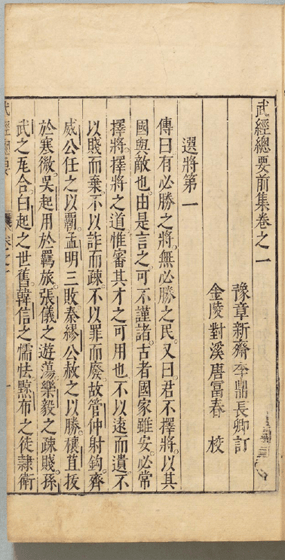 武經總要前集卷之一
豫章新齋李鼎長卿訂
金陵對溪唐冨春 校
選將第一
傳曰有必勝之將無必勝之民又曰君不擇將以其
國與敵也由是言之可不謹諸古者國家雖安必常
擇將擇將之道惟審其才之可用也不以遠而遺不
以賤而棄不以詐而疎不以罪而廢故管仲射鈎齊
威公任之以霸孟明三敗秦繆公赦之以勝穰苴拔
於寒微吳起用於羈旅張儀之遊蕩樂毅之疎賤孫
武之瓦合白起之世舊韓信之懦怯黥布之徒隷衛
武經總要